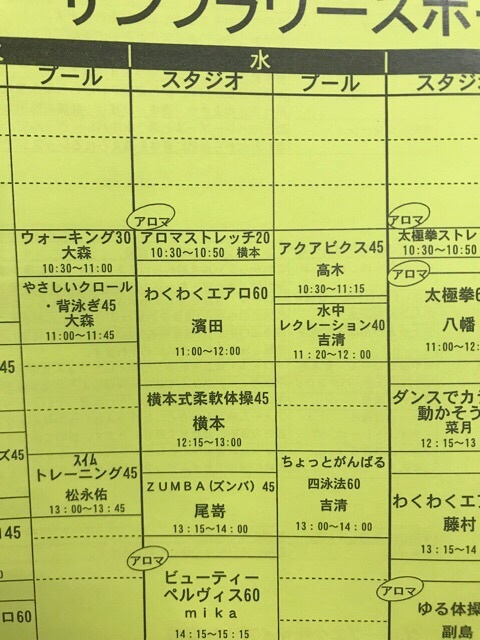 サンフラワースポ
水
プール
スタジオ
プール
スタジオ
ウォーキング30
大森
10:30～11:00
やさしいクロール
・背泳ぎ45
大森
11:00～11:45
スイム
トレーニング45
松永佑
13:00～13:45
アロマ
アロマストレッチ20
10:30～10:50 横本
わくわくエアロ60
濱田
11:00～12:00
横本式柔軟体操45
横本
12:15～13:00
ZUMBA(ズンバ) 45
尾嵜
13:15～14:00
アロマ
ビューティー
ペルヴィス60
mika
14:15～15:15
アクアビクス45
高木
10:30～11:15
水中
レクレーション40
吉清
11:20～12:00
ちょっとがんばる
四泳法60
吉清
13:00～14:00
アロマ
太極拳ストレ
10:30～10:50
アロマ
太極拳6
八幡
11:00～12:
ダンスでカラ
動かそう
菜月
12:15～13
わくわくエア
藤村
13:15～14
アロマ
ゆる体操
副島
45
ズ45
45
ロ60